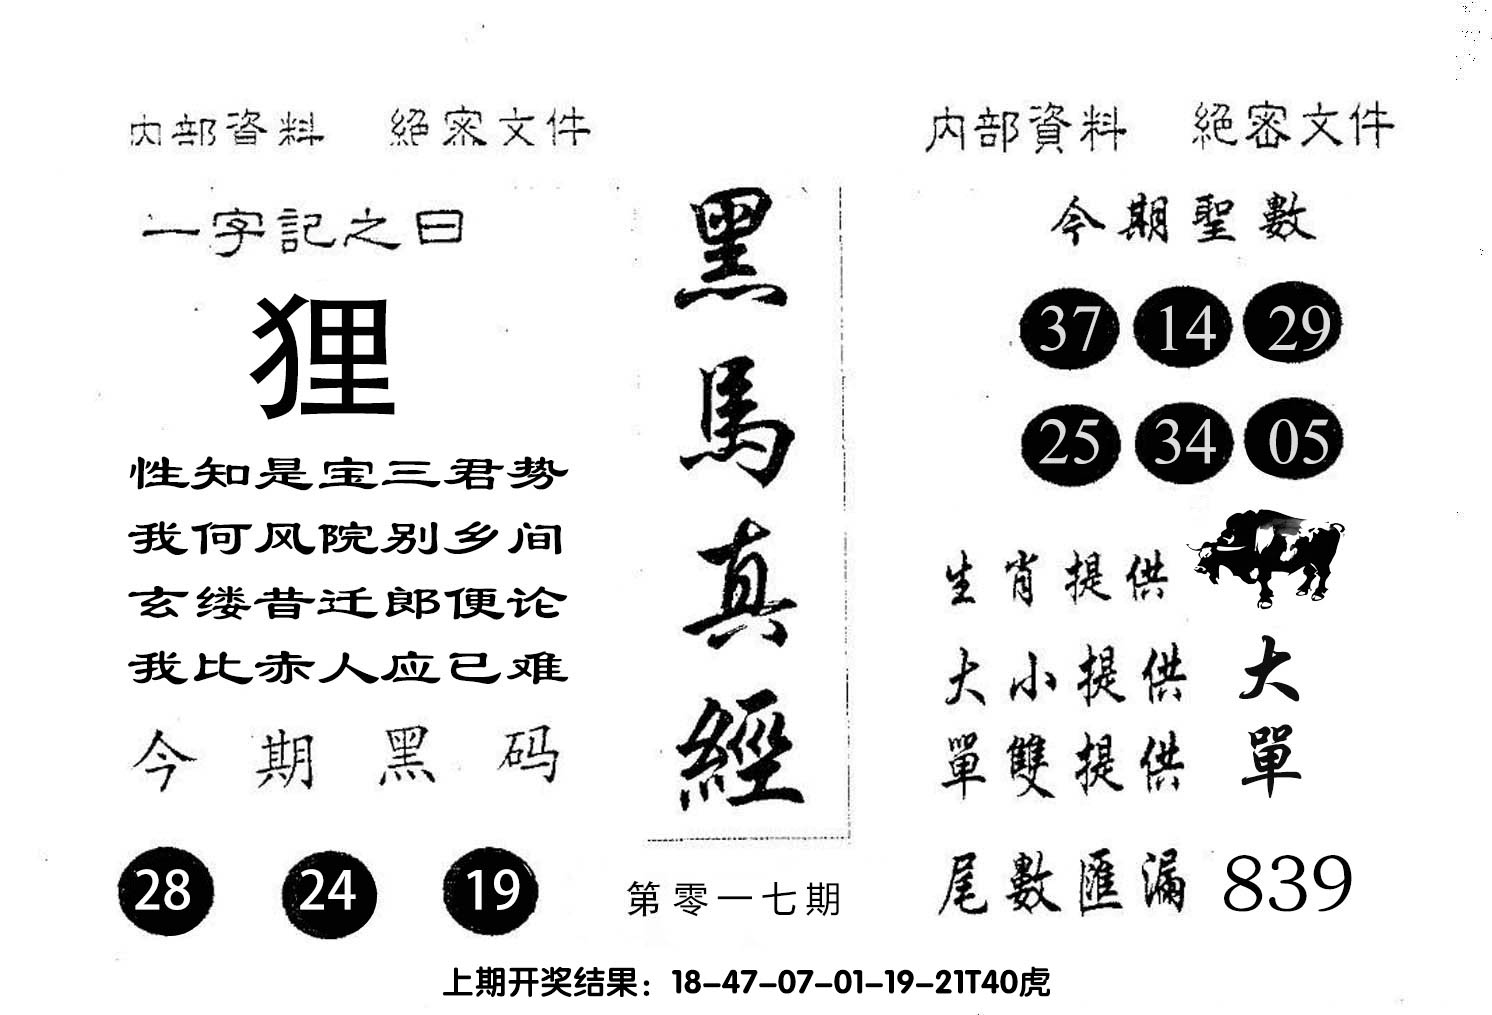 内部資料 絕密文件
一字記之曰
狸
性知是宝三君势
我何风院别乡间
玄缕昔迁郎便论
我比赤人应已难
今期黑码
28 24 19
黑馬真經
第零一七期
内部資料 絕密文件
今期聖數
37 14 29
25 34 05
生肖提供
大小提供 大
單雙提供 單
尾數匯漏 839
上期开奖结果：18-47-07-01-19-21T40虎